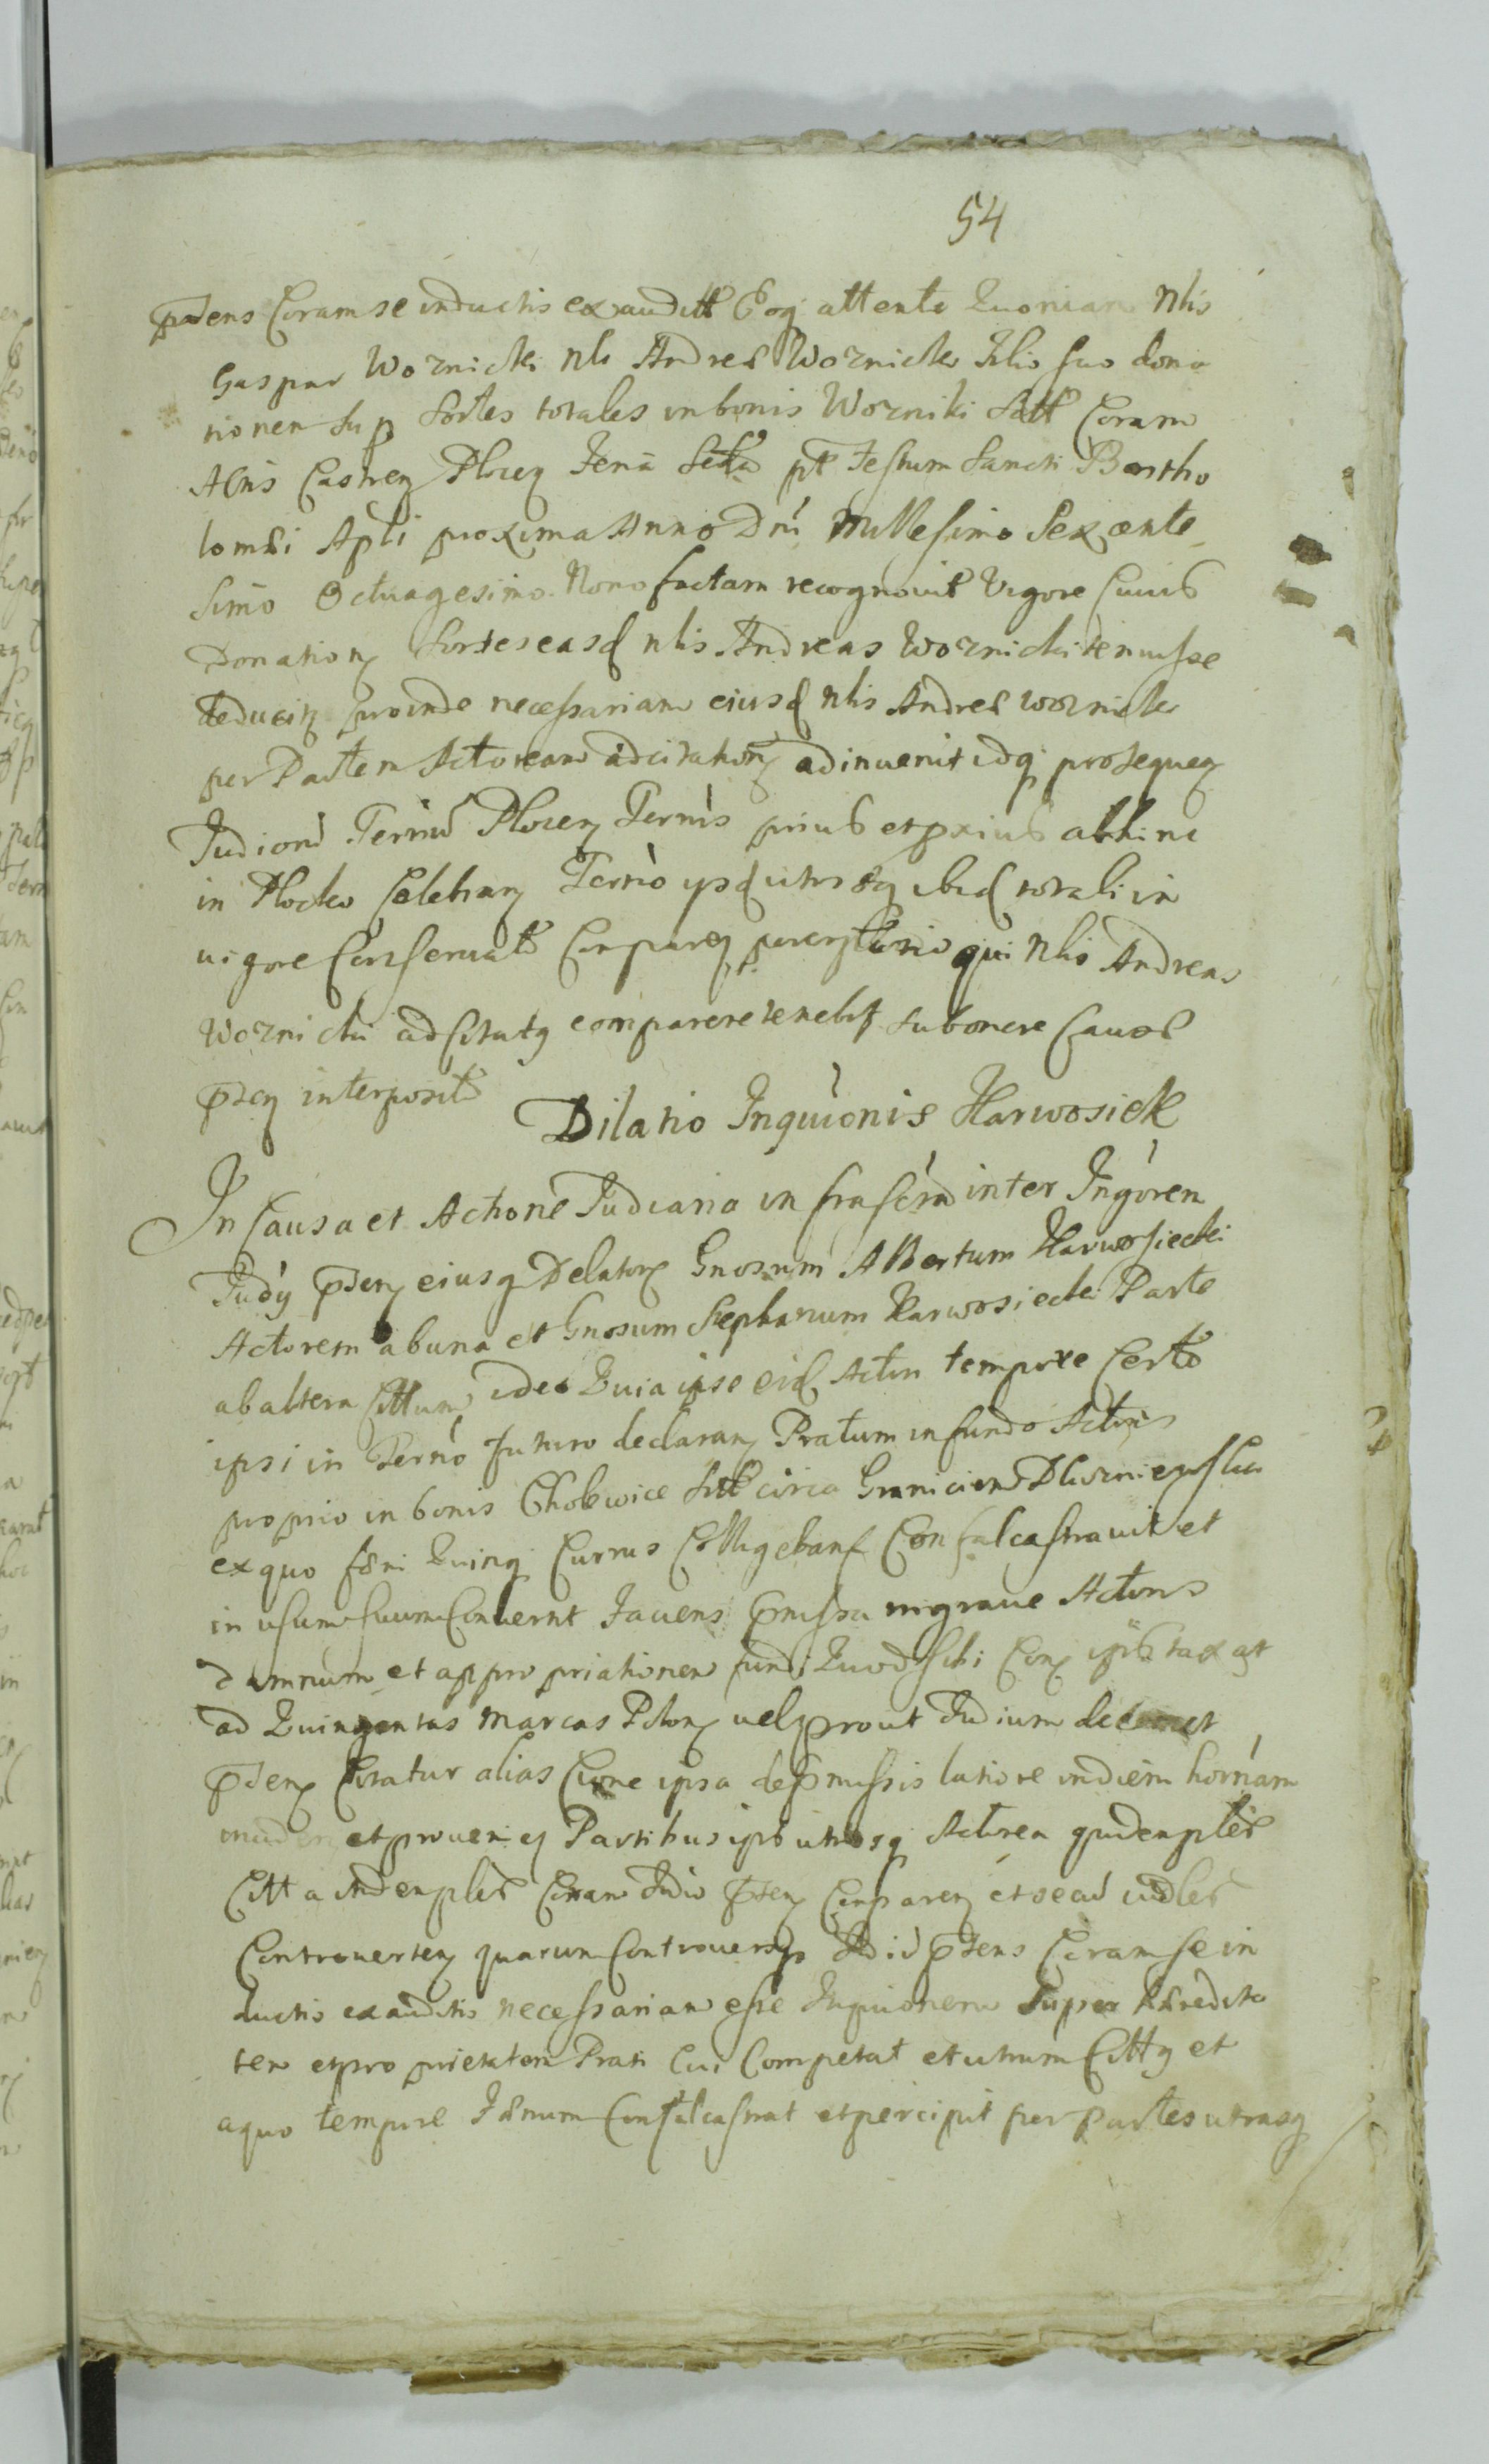 54
pñdens Coram se inductis exaudittt Eoq attento Quoniam Nlis
Gaspar Woznicki Nls Andreæ Woznicki Filio suo dona
tionem sup Sortes totales in bonis Wozniki Sitt Coram
Actis Castren Plocen Feria Sexta pt Festum Sancti Bartho
lomæi Apli proxima Anno Dni Millesimo Sexcente
simo Octuagesimo Nono factam recognovit Vigore Cuius
Donation Sortes easd Nlis Andreas Woznicki tenuisse
deducit proinde necessariam eiusd Nlis Andreæ Woznicki
per Partem Actoream adcitation adinuenit idq prosequen
Judiorũ Terrũ Plocen Termis prius et pxius abhinc
in Plocko Celebran Termo ips utrisq ibid totali in
uigore Conseruato Comparen qui Nlis Andreas
Woznicki adcitatq comparere tenebit sub onere Causæ
pñden interposito
Dilatio Inquionis Karwosieck
In Causa et Actione Judiaria infrascra inter Ingoren
Judÿ pñden eiusq Delatore Gnosum Albertum Karwosiecki
Actorem ab una et Gnosum Stephanum Karwosiecki Parte
ab altera Cittum ideo Quia ipse eid Actori tempore Certo
ipsi in Termo futuro declaran Pratum in fundo Actoris
proprio in bonis Cholewice Sitt circa Graniciem
ex quo fæni Quinq Currus Colligebant Confalcastrauit et
in usum suum Conuertit Faciens pmissa in graue Actoris
damnum et appropriationem fundi Quod sibi Con ipsũ taxat
ad Quingentas Marcas Polon uel prout Judium decernet
pñden Citatur alias Cione ipsa de pmissis latiore in diem hornam
et proueni Partibus ips utrisq Actorea quidem plr
Citta itidem plr Coram Judio pñden Comparen et se ad
Controuerten quarum Controuersÿs Judiũ pñdens Coram se in
ductis exauditis necessariam esse Inquionem Super hæredita
tem et proprietatem Prati Cui Competat et utrum Cittq et
a quo tempore Fænum Confalcastrat et percipit per Partes utrasq